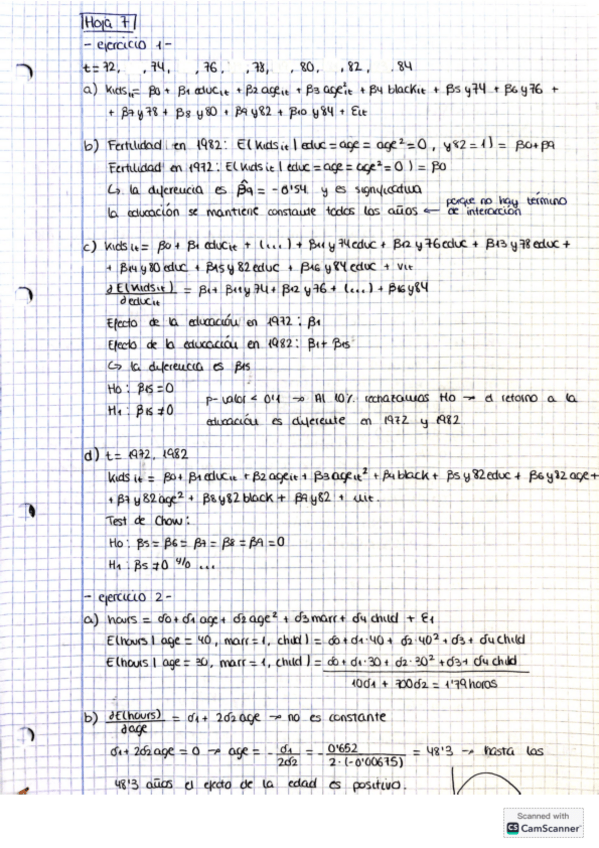 Hoja 7
- ejercicio 1 -
t = 72, , 74, , 76, , 78, , 80, , 82, , 84
a) Kidsit = β0 + β1 educit + β2 ageit + β3 age²it + β4 blackit + β5 y74 + β6 y76 +
+ β7 y78 + β8 y80 + β9 y82 + β10 y84 + εit
b) Fertilidad en 1982: E(Kidsit | educ = age = age² = 0, y82 = 1) = β0 + β9
Fertilidad en 1972: E(Kidsit | educ = age = age² = 0) = β0
↳ la diferencia es β̂9 = -0'54 y es significativa
la educación se mantiene constante todos los años ← porque no hay término de interacción
c) Kidsit = β0 + β1 educit + (...) + β11 y74educ + β12 y76educ + β13 y78educ +
+ β14 y80educ + β15 y82educ + β16 y84educ + vit
∂E(Kidsit)/∂educit = β1 + β11 y74 + β12 y76 + (...) + β16 y84
Efecto de la educación en 1972: β1
Efecto de la educación en 1982: β1 + β15
↳ la diferencia es β15
H0: β15 = 0
H1: β15 ≠ 0 p-valor < 0'1 → Al 10% rechazamos H0 → el retorno a la
educación es diferente en 1972 y 1982
d) t = 1972, 1982
Kidsit = β0 + β1 educit + β2 ageit + β3 ageit² + β4 black + β5 y82educ + β6 y82age +
+ β7 y82age² + β8 y82black + β9 y82 + uit.
Test de Chow:
H0: β5 = β6 = β7 = β8 = β9 = 0
H1: β5 ≠ 0 y/o ...
- ejercicio 2 -
a) hours = δ0 + δ1 age + δ2 age² + δ3 marr + δ4 child + ε1
E(hours | age = 40, marr = 1, child) = δ0 + δ1·40 + δ2·40² + δ3 + δ4 child
E(hours | age = 30, marr = 1, child) = δ0 + δ1·30 + δ2·30² + δ3 + δ4 child
10δ1 + 700δ2 = 1'79 horas
b) ∂E(hours)/∂age = δ1 + 2δ2 age → no es constante
δ1 + 2δ2 age = 0 → age = -δ1/2δ2 = -0'652/2·(-0'00675) = 48'3 → hasta los
48'3 años el efecto de la edad es positivo.
Scanned with
CS CamScanner